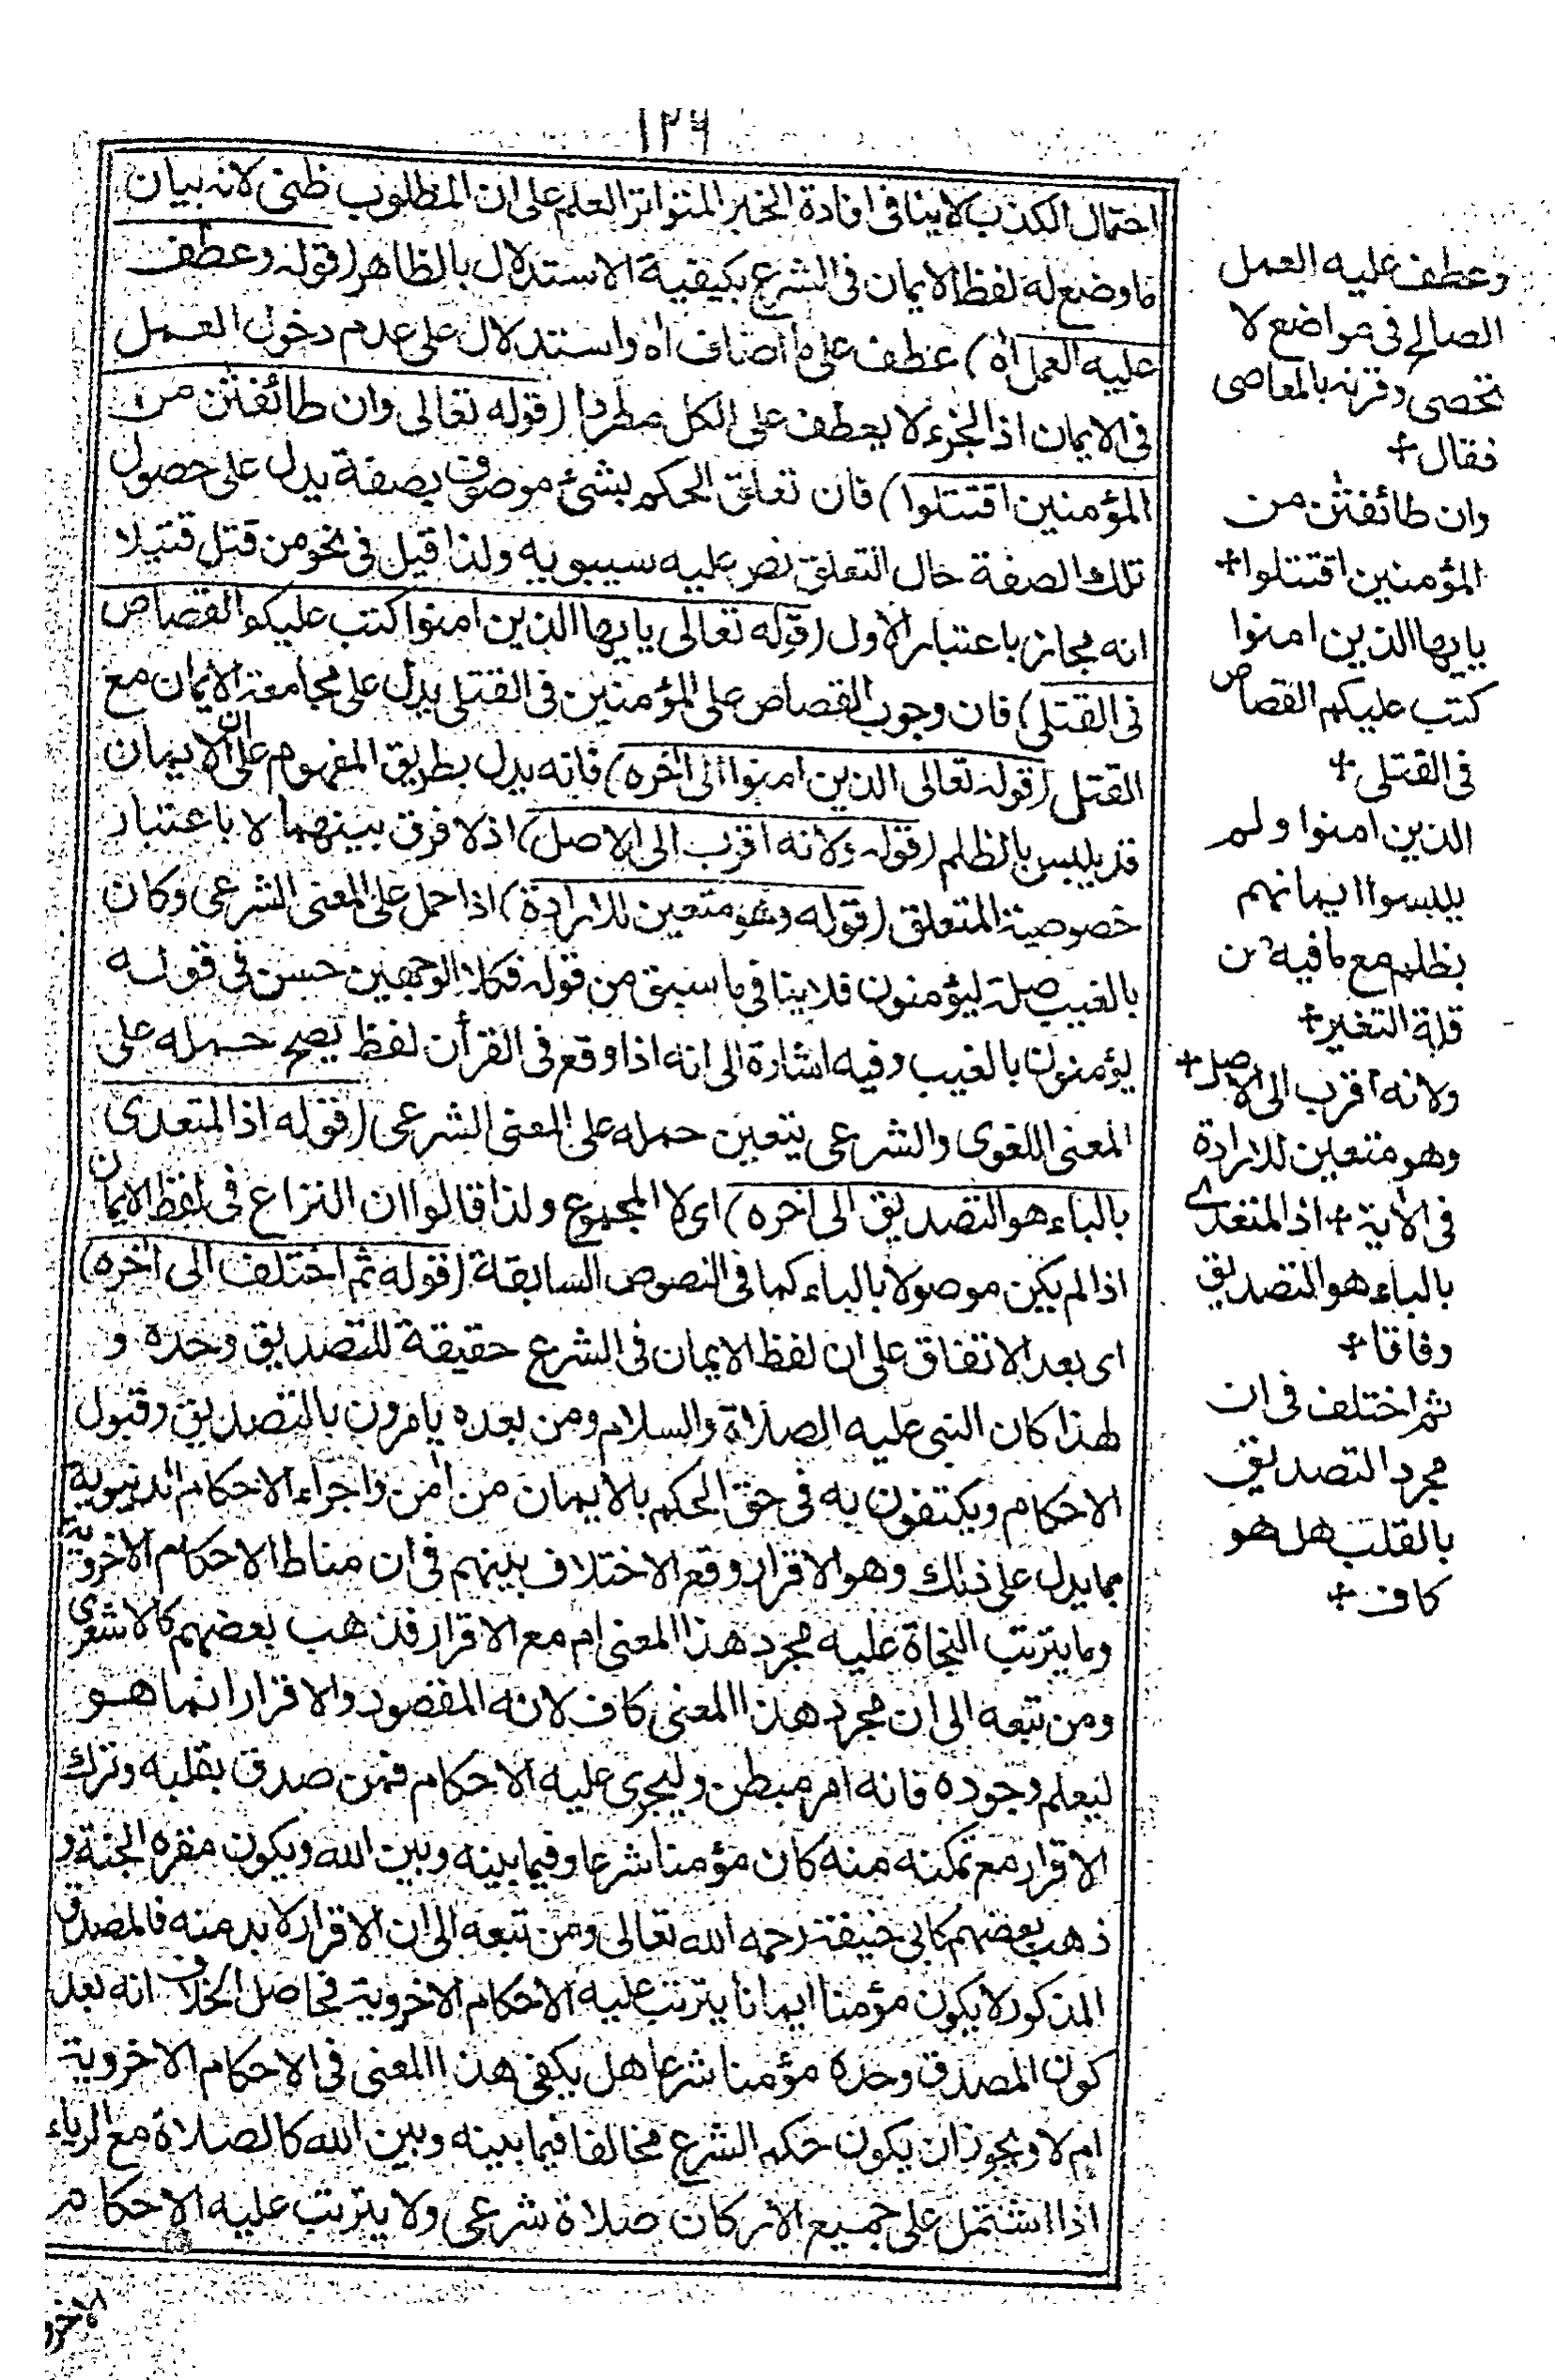 ١٢٦
احتمال الكذب لاينافى افادة الخبر المتواتر العلم على ان المطلوب ظنى لانه بيان
ما وضع له لفظ الايمان فى الشرع بكيفية الاستدلال بالظاهر (قوله وعطف
عليه العمل اه) عطف على ما اضاف اه واستدلال على عدم دخول العمل
فى الايمان اذ الجزء لا يعطف على الكل مطردا (قوله تعالى وان طائفتٰن من
المؤمنين اقتتلوا) فان تعلق الحكم بشئ موصوف بصفة يدل على حصول
تلك الصفة حال التعلق نص عليه سيبويه ولذا قيل فى نحو من قتل قتيلا
انه مجاز باعتبار الاول (قوله تعالى يايها الذين امنوا كتب عليكم القصاص
فى القتلى) فان وجوب القصاص على المؤمنين فى القتلى يدل على مجامعة الايمان مع
القتل (قوله تعالى الذين امنوا الى اخره) فانه يدل بطريق المفهوم على ان الايمان
قد يلبس بالظلم (قوله ولانه اقرب الى الاصل) اذ لا فرق بينهما الا باعتبار
خصوصية المتعلق (قوله وهو متعين للارادة) اذا حمل على المعنى الشرعى وكان
بالغيب صلة ليؤمنون فلاينافى ما سبق من قوله فكلا الوجهين حسن فى قوله
يؤمنون بالغيب وفيه اشارة الى انه اذا وقع فى القرأن لفظ يصح حمله على
المعنى اللغوى والشرعى يتعين حمله على المعنى الشرعى (قوله اذ المتعدى
بالباء هو التصديق الى اخره) اى لا المجموع ولذا قالوا ان النزاع فى لفظ الايمان
اذا لم يكن موصولا بالباء كما فى النصوص السابقة (قوله ثم اختلف الى اخره)
اى بعد الاتفاق على ان لفظ الايمان فى الشرع حقيقة للتصديق وحده و
لهذا كان النبى عليه الصلاة والسلام ومن بعده يامرون بالتصديق وقبول
الاحكام ويكتفون به فى حق الحكم بالايمان من أمن واجراء الاحكام الدنيوية
بما يدل على ذلك وهو الاقرار وقع الاختلاف بينهم فى ان مناط الاحكام الاخروية
وما يترتب النجاة عليه مجرد هذا المعنى ام مع الاقرار فذهب بعضهم كالاشعرى
ومن تبعه الى ان مجرد هذا المعنى كاف لانه المقصود والاقرار انما هو
ليعلم وجوده فانه امر مبطن وليجرى عليه الاحكام فمن صدق بقلبه وترك
الاقرار مع تمكنه منه كان مؤمنا شرعا وفيما بينه وبين الله ويكون مقره الجنة و
ذهب بعضهم كابى حنيفة رحمه الله تعالى ومن تبعه الى ان الاقرار لا بد منه فالمصدق
المذكور لا يكون مؤمنا ايمانا يترتب عليه الاحكام الاخروية فحاصل الخلاف انه بعد
كون المصدق وحده مؤمنا شرعا هل يكفى هذا المعنى فى الاحكام الاخروية
ام لا ويجوز ان يكون حكم الشرع مخالفا فيما بينه وبين الله كالصلاة مع الرياء
اذا اشتمل على جميع الاركان صلاة شرعى ولا يترتب عليه الاحكام
وعطف عليه العمل
الصالح فى مواضع لا
تحصى وقرنه بالمعاصى
فقال +
وان طائفتٰن من
المؤمنين اقتتلوا +
يايها الذين امنوا
كتب عليكم القصاص
فى القتلى +
الذين امنوا ولم
يلبسوا ايمانهم
بظلم مع مافيه من
قلة التغير +
ولانه اقرب الى الاصل +
وهو متعين للارادة
فى الأية + اذ المتعدى
بالباء هو التصديق
وفاقا +
ثم اختلف فى ان
مجرد التصديق
بالقلب هل هو
كاف +